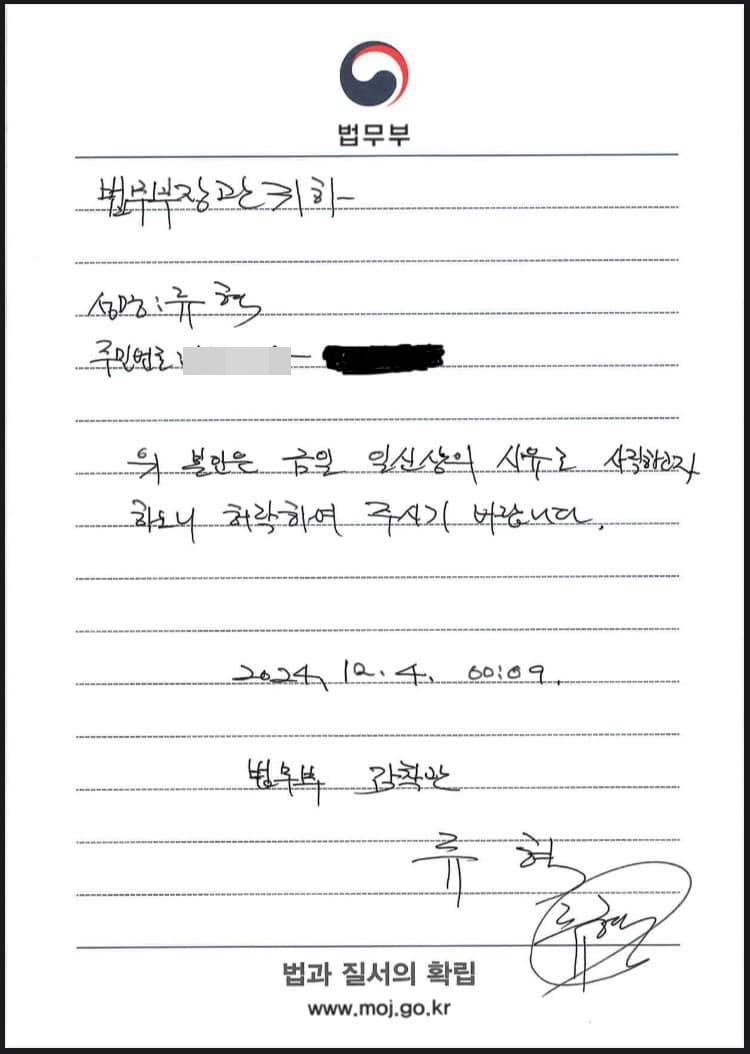 법무부
법무부장관 귀하
성명: 류 혁
주민번호: –
위 본인은 금일 일신상의 사유로 사직하고자
하오니 허락하여 주시기 바랍니다.
2024. 12. 4. 00:09.
법무부 감찰관
류 혁
류혁
법과 질서의 확립
www.moj.go.kr